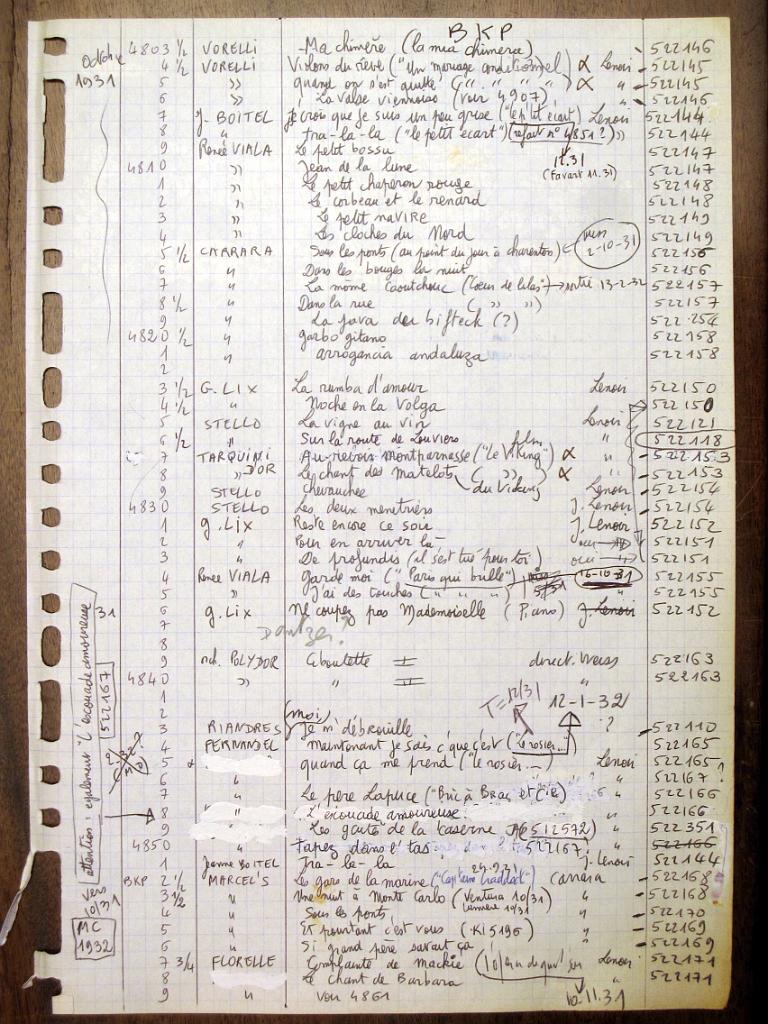 BKP
Octobre 1931
4803 1/2 VORELLI - Ma chimère (la mia chimera) 522146
4 1/2 VORELLI Violons du rêve ("Un mariage conditionnel) α Lenoir 522145
5 " quand on s'est quitté (" " " ") α " 522145
6 " La valse viennoise (voir 4907) " 522146
7 J. BOITEL Je crois que je suis un peu grise ("le p'tit écart) Lenoir 522144
8 " tra-la-la ("le petit écart") (refait n° 4851?) " 522144
9 Renée VIALA Le petit bossu 522147
4810 " Jean de la lune 12.31 (Favart 11.31) 522147
1 " Le petit chaperon rouge 522148
2 " Le corbeau et le renard 522148
3 " Le petit navire 522149
4 " Les cloches du Nord 522149
5 1/2 CARRARA Sous les ponts (au point du jour à charenton) vers 2-10-31 522156
6 " Dans les bouges la nuit 522156
7 " La môme caoutchouc ("Coeur de lilas") → sortie 13-2-32 522157
8 1/2 " Dans la rue (" ") 522157
9 " La java du bifteck (?) 522254
4820 1/2 " garbo gitano 522158
1 " arrogancia andaluza 522158
2
3 1/2 G. LIX La rumba d'amour Lenoir 522150
4 1/2 " Noche en la Volga 522150
5 STELLO La vigne au vin Lenoir 522121
6 1/2 " Sur la route de Louviers " 522118
7 TARQUINI D'OR Au revoir montparnasse ("Le Viking") film α " 522153
8 " Le chant des matelots (" ") du Viking α " 522153
9 STELLO chevauchée Lenoir 522154
4830 STELLO Les deux menetriers J. Lenoir 522154
1 g. Lix Reste encore ce soir J. Lenoir 522152
2 " Pour en arriver là oui 522151
3 " De profundis (il s'est tué pour toi) oui 522151
4 Renée VIALA Garde moi ("Paris qui brille") 16-10-31 522155
5 " J'ai des touches (" " ") 5/31 522155
6 g. Lix Ne coupez pas Mademoiselle (Piano) J. Lenoir 522152
7
31
8
9 orch. POLYDOR Ciboulette I direct. Weiss 522163
4840 " " II " 522163
1
2 T=12/31 12-1-32
3 RIANDREYS (moi) Je m'débrouille ? 522110
4 FERNANDEL maintenant je sais c'que c'est ("Le rosier...) 522165
5 quand ça me prend ("Le rosier...) Lenoir 522165
6 " " 522167 ?
7 " Le père Lapuce ("Bric à Brac et Cie) " 522166
8 " L'escouade amoureuse 522166
9 " Les gaités de la caserne (512572) " 522351
4850 " Tapez dans l'tas 522167 " 522166
1 Jeanne BOITEL Tra-la-la J. Lenoir 522144
BKP 2 1/2 MARCEL'S Les gars de la marine ("Capitaine Craddock") 24.9.31 Carrara 522168
3 1/2 " Une nuit à Monte Carlo (Ventura 10/31) " 522168
4 " Sous les ponts 10/31 " 522170
5 " Et pourtant c'est vous (Ki 5196) " 522169
6 " Si grand père savait ça " 522169
7 3/4 FLORELLE Complainte de Mackie Lenoir 522171
8 Le chant de Barbara 522171
9 " voir 4861 10.11.31
attention: également "L'escouade amoureuse 522167
vers 10/31
MC 1932